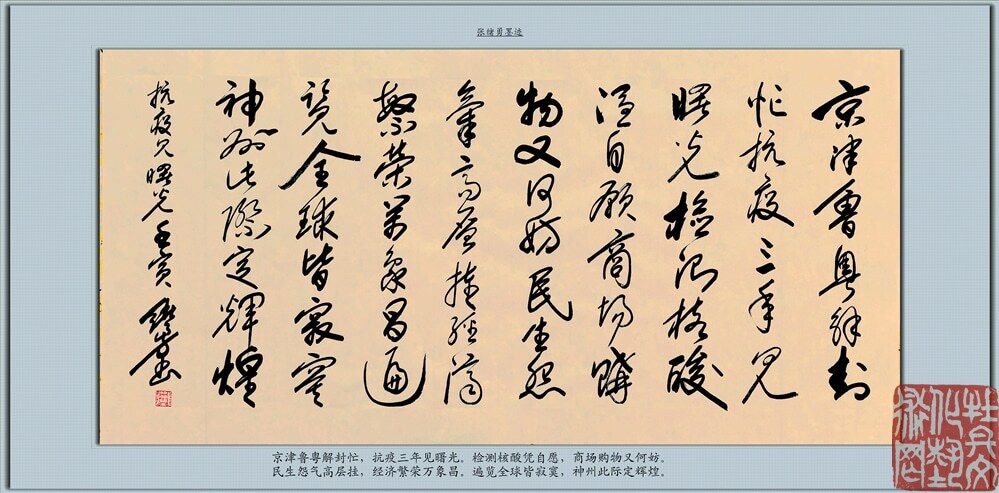 张绪勇墨迹
京津鲁粤解封
忙抗疫三年见
曙光检测核酸
凭自愿商场购
物又何妨民生怨
气高层挂经济
繁荣万象昌遍
览全球皆寂寞
神州此际定辉煌
抗疫见曙光壬寅
京津鲁粤解封忙，抗疫三年见曙光。检测核酸凭自愿，商场购物又何妨。
民生怨气高层挂，经济繁荣万象昌。遍览全球皆寂寞，神州此际定辉煌。